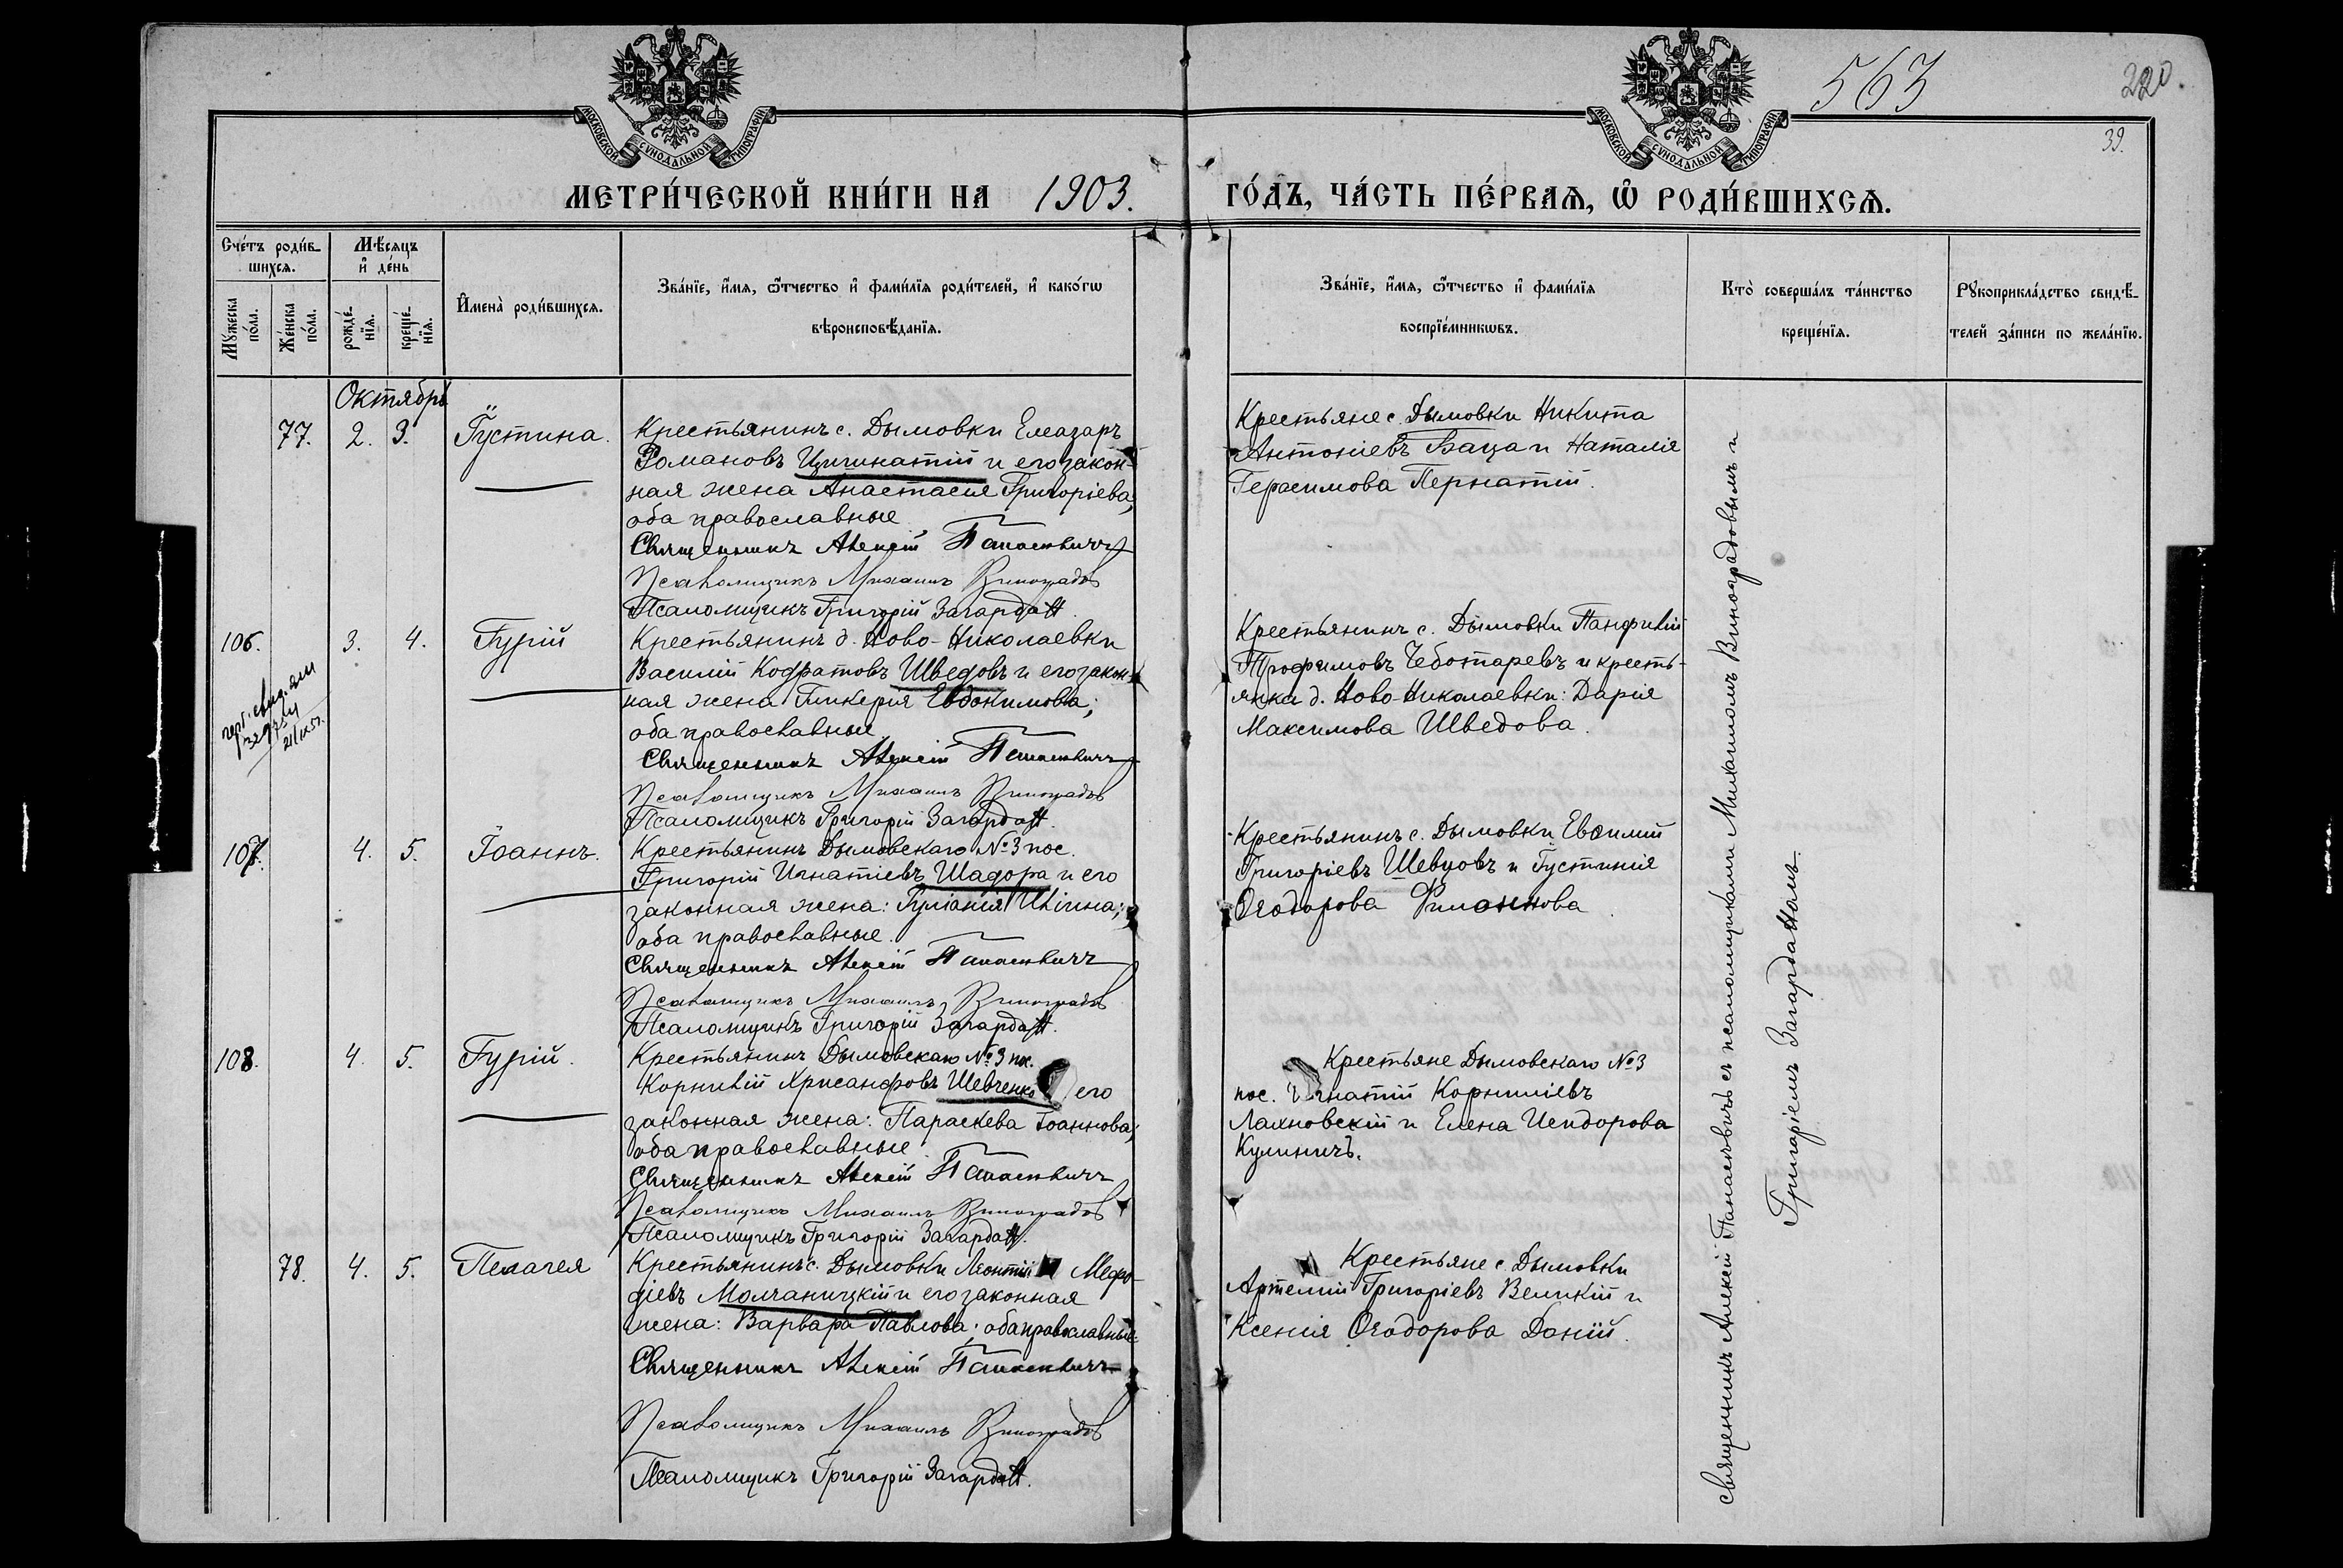 МОСКОВСКОЙ СѴНОДАЛЬНОЙ ТИПОГРАФІИ
МОСКОВСКОЙ СѴНОДАЛЬНОЙ ТИПОГРАФІИ
563
220
39.
МЕТРИ́ЧЕСКОЙ КНИ́ГИ НА 1903. ГО́ДЪ, ЧА́СТЬ ПЕ́РВАѦ, Ѡ҆ РОДИ́ВШИХСѦ.
Сче́тъ роди́в-
шихсѧ.
Мѣ́сѧцъ
и҆ де́нь
Мꙋ́жеска
по́ла.
Же́нска
по́ла.
рожде́-
нїѧ.
креще́-
нїѧ.
И҆мена̀ роди́вшихсѧ.
Зва́нїе, и҆́мѧ, ѻ҆́тчество и҆ фами́лїѧ роди́телей, и҆ како́гѡ
вѣроисповѣ́данїѧ.
Зва́нїе, и҆́мѧ, ѻ҆́тчество и҆ фами́лїѧ
воспрїе́мникѡвъ.
Кто̀ соверша́лъ та́инство
креще́нїѧ.
Рꙋкоприкла́дство свидѣ́-
телей за́писи по жела́нїю.
Октябрь
77. 2. 3. Іустина.
Крестьянинъ с. Дымовки Елеазаръ
Романовъ Цигинатій и его закон-
ная жена Анастасія Григоріева,
оба православные
Священникъ Алексій Панасевичъ
Псаломщикъ Михаилъ Виноградовъ
Псаломщикъ Григорій Загардан.
Крестьяне с. Дымовки Никита
Антоніевъ Баца и Наталія
Герасимова Пернатій.
106. 3. 4. Гурій
Крестьянинъ д. Ново-Николаевки
Василій Кодратовъ Шведовъ и его закон-
ная жена Гликерія Евдокимова;
оба православные
Священникъ Алексій Панасевичъ
Псаломщикъ Михаилъ Виноградовъ
Псаломщикъ Григорій Загардан.
Крестьянинъ с. Дымовки Панфилій
Трофимовъ Чеботаревъ и кресть-
янка д. Ново-Николаевки: Дарія
Максимова Шведова.
107. 4. 5. Іоаннъ.
Крестьянинъ Дымовскаго №3 пос.
Григорій Игнатіевъ Шадора и его
законная жена: Іуліанія Иліина;
оба православные.
Священникъ Алексій Панасевичъ
Псаломщикъ Михаилъ Виноградовъ
Псаломщикъ Григорій Загардан.
Крестьянинъ с. Дымовки Евѳимій
Григоріевъ Шевцовъ и Іустинія
Ѳеодорова Филонова
108. 4. 5. Гурій.
Крестьянинъ Дымовскаго №3 пос.
Корнилій Хрисанфовъ Шевченко его
законная жена: Параскева Іоаннова;
оба православные
Священникъ Алексій Панасевичъ
Псаломщикъ Михаилъ Виноградовъ
Псаломщикъ Григорій Загардан.
Крестьяне Дымовскаго №3
пос. Игнатій Корниліевъ
Лахновскій и Елена Исидорова
Кулиничъ.
78. 4. 5. Пелагея
Крестьянинъ с. Дымовки Леонтій Мефо-
діевъ Молчаницкій и его законная
жена: Варвара Павлова; оба православные
Священникъ Алексій Панасевичъ
Псаломщикъ Михаилъ Виноградовъ
Псаломщикъ Григорій Загардан.
Крестьяне с Дымовки
Артемій Григоріевъ Великій и
Ксенія Ѳеодорова Даній.
священникъ Алексій Панасевичъ съ псаломщиками Михаиломъ Виноградовымъ и
Григоріемъ Загарданомъ.